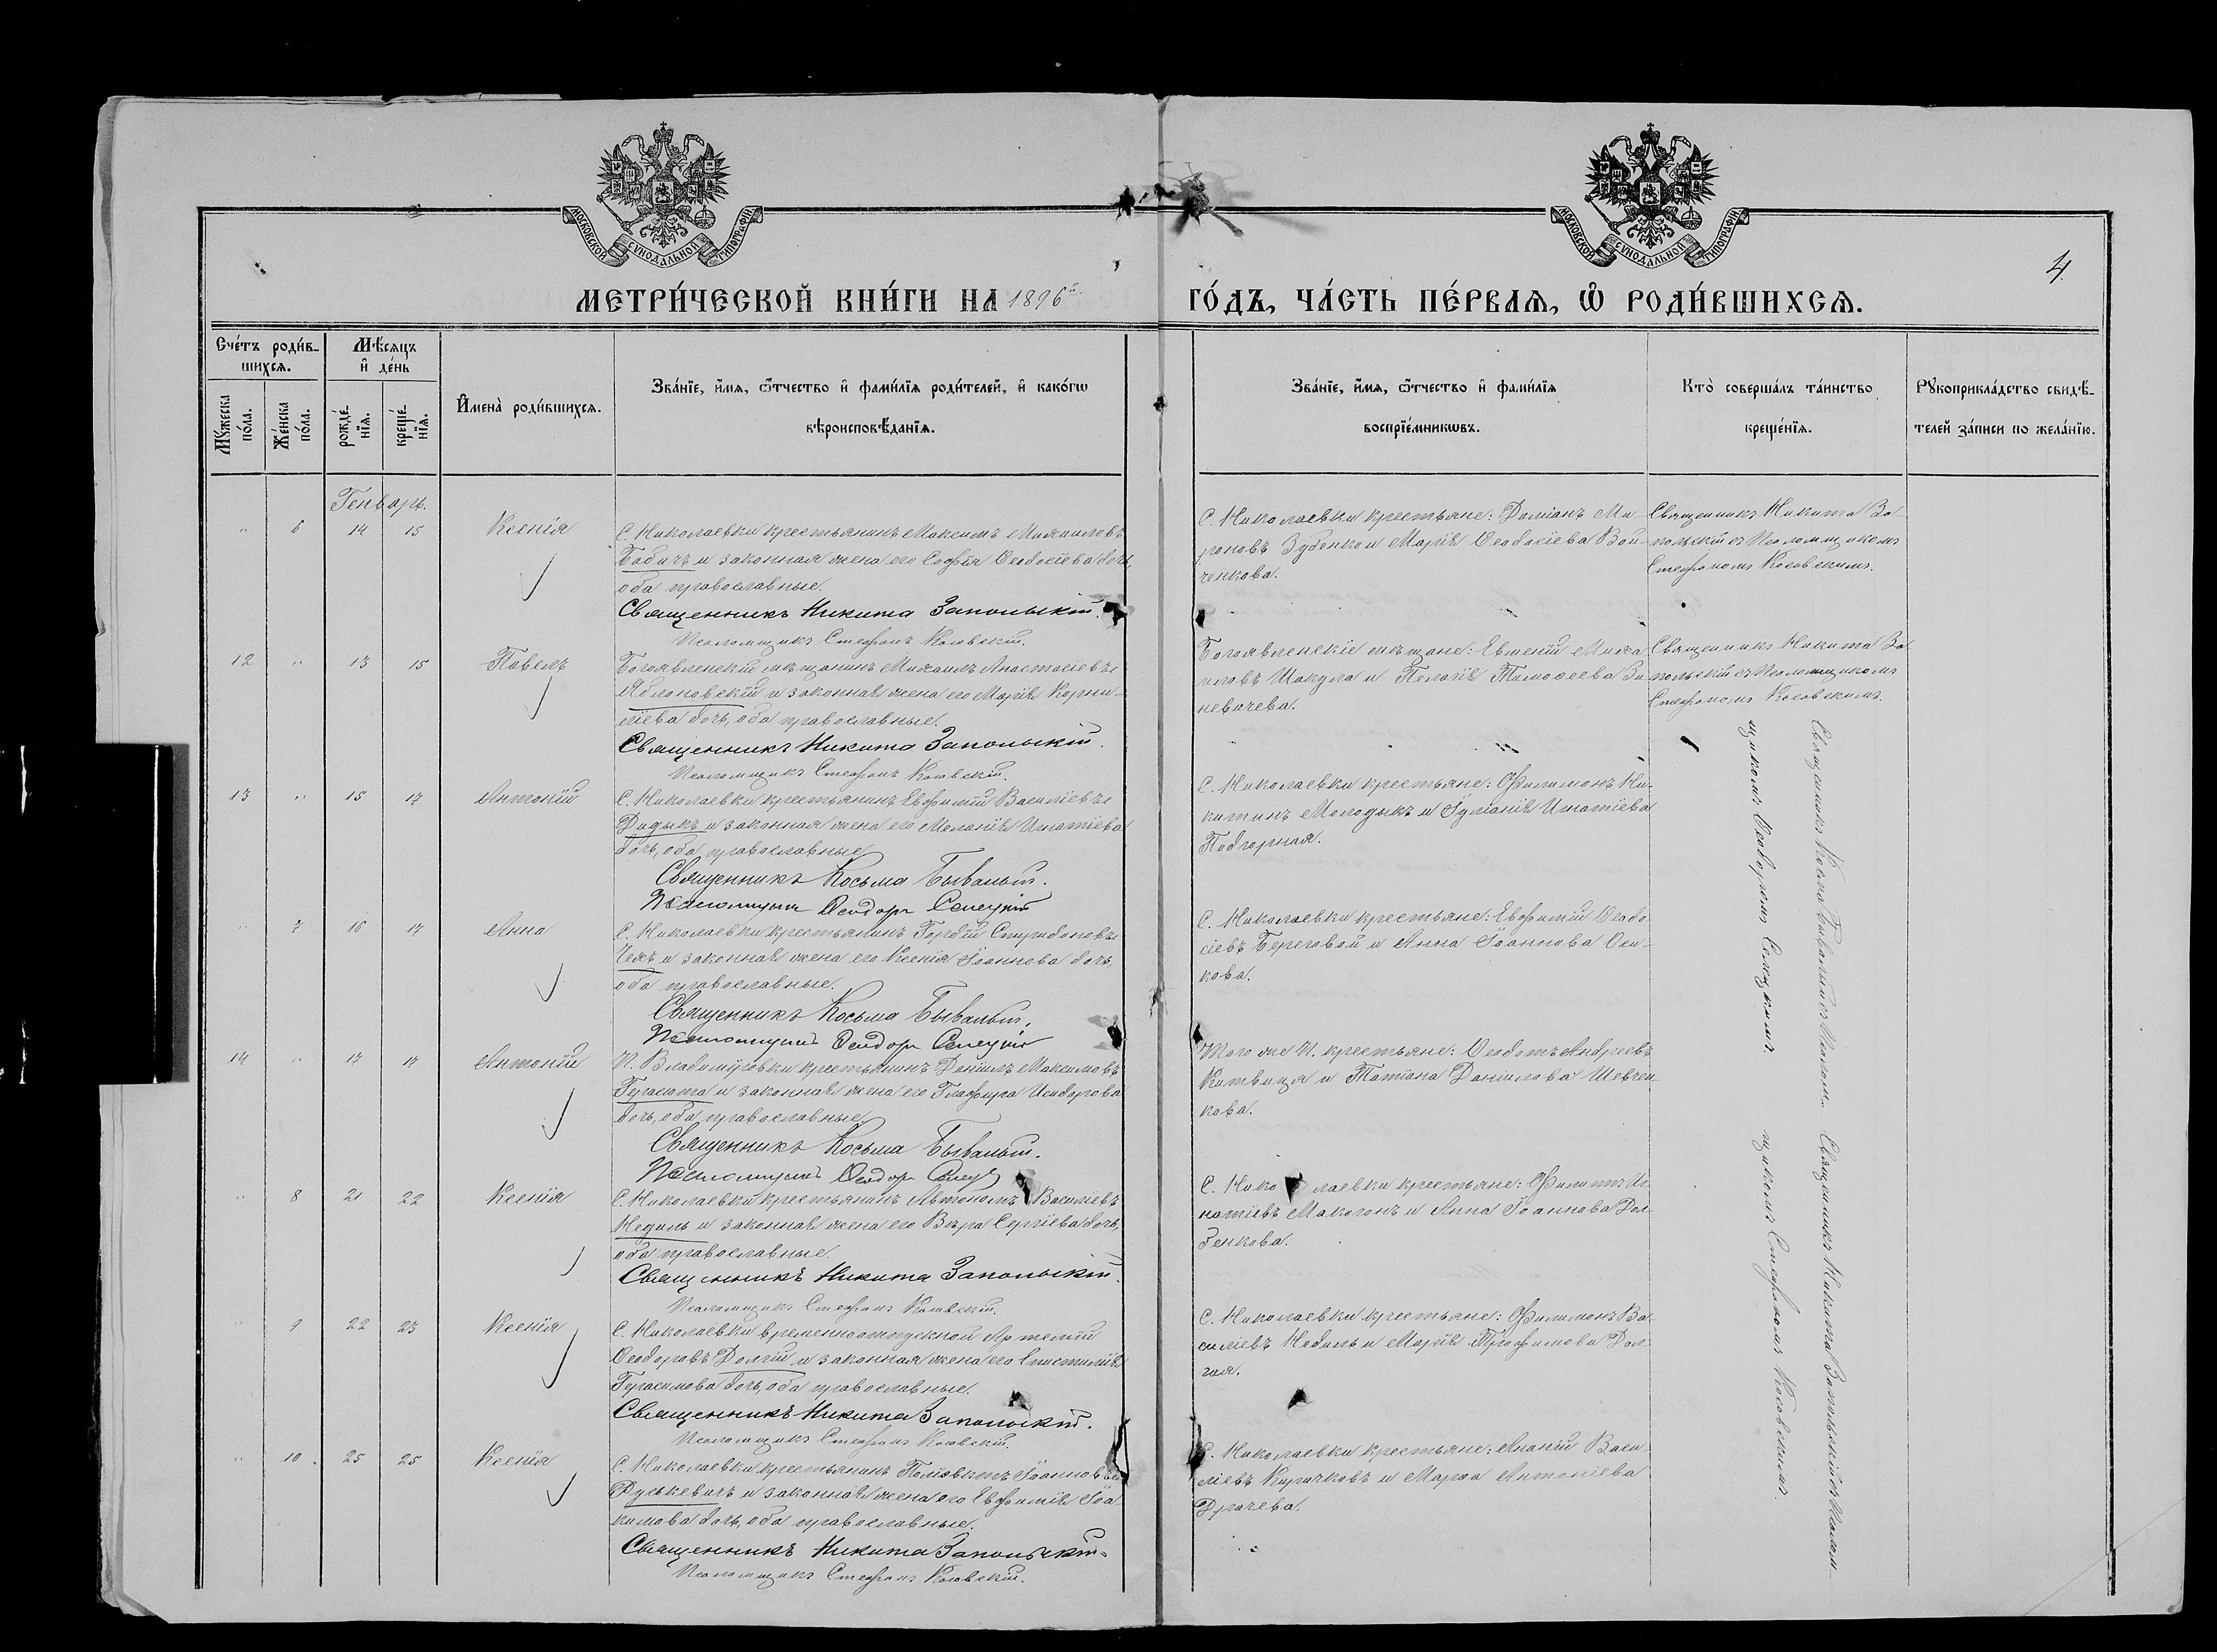 МОСКОВСКОЙ СѴНОДАЛЬНОЙ ТИПОГРАФІИ
МОСКОВСКОЙ СѴНОДАЛЬНОЙ ТИПОГРАФІИ
4
МЕТРИ́ЧЕСКОЙ КНИ́ГИ НА 1896й
ГО́ДЪ, ЧА́СТЬ ПЕ́РВАЯ, Ѡ҆ РОДИ́ВШИХСЯ.
Сче́тъ роди́в-
шихся.
Мѣ́сяцъ
и҆ де́нь
Мꙋ́жеска
по́ла.
Же́нска
по́ла.
рожде́-
нїя.
креще́-
нїя.
И҆мена̀ роди́вшихся.
Зва́нїе, и҆́мя, ѻ҆́тчество и҆ фами́лїя роди́телей, и҆ како́гѡ
вѣроисповѣ́данїя.
Зва́нїе, и҆́мя, ѻ҆́тчество и҆ фами́лїя
воспрїе́мникѡвъ.
Кто̀ соверша́лъ та́инство
креще́нїя.
Рꙋкоприкла́дство свидѣ́-
телей за́писи по жела́нїю.
Генварь.
" 6 14 15 Ксенія
С. Николаевки крестьянинъ Максимъ Михаиловъ
Бабичъ и законная жена его Софія Ѳеодосіева дочь,
оба православные.
Священникъ Никита Запольскій.
Псаломщикъ Стефанъ Косовскій.
С. Николаевки крестьяне: Даміанъ Ми-
роновъ Зубенко и Марія Ѳеодосіева Вой-
ченкова.
Священникъ Никита За-
польскій съ Псаломщикомъ
Стефаномъ Косовскимъ.
12 " 13 15 Павелъ
Богоявленскій мѣщанинъ Михаилъ Анастасіевъ
Яблоновскій и законная жена его Марія Корни-
ліева дочь, оба православные.
Священникъ Никита Запольскій.
Псаломщикъ Стефанъ Косовскій.
Богоявленскіе мѣщане: Евменій Миха
иловъ Шакула и Пелагія Тимоѳеева Зи-
невичева.
Священникъ Никита За
польскій съ Псаломщикомъ
Стефаномъ Косовскимъ.
13 " 15 17 Антоній
С. Николаевки крестьянинъ Евфимій Василіевъ
Дидыкъ и законная жена его Меланія Игнатіева
дочь, оба православные
Священникъ Косьма Бывалый.
Псаломщикъ Ѳеодоръ Селецкій
С. Николаевки крестьяне: Филимонъ Ни-
китинъ Молодыкъ и Іуліанія Игнатіева
Подгорная.
" 7 16 17 Анна
С. Николаевки крестьянинъ Гордій Спиридоновъ
Чехъ и законная жена его Ксенія Іоаннова дочь,
оба православные.
Священникъ Косьма Бывалый.
Псаломщикъ Ѳеодоръ Селецкій
С. Николаевки крестьяне: Евфимій Ѳеодо-
сіевъ Береговой и Анна Іоаннова Оси-
кова.
14 " 17 17 Антоній
П. Владиміровки крестьянинъ Даніилъ Максимовъ
и законная жена его Глафира Исидорова
дочь, оба православные
Священникъ Косьма Бывалый.
Псаломщикъ Ѳеодоръ
Того же П. крестьяне: Ѳеодотъ Андреевъ
Китвица и Татіана Даніилова Шевчен-
кова.
Священникъ Косма Бывалый съ Псалом-
щикомъ Ѳеодоромъ Селецкимъ.
" 8 21 22 Ксенія
С. Николаевки крестьянинъ Автономъ Василіевъ
Недиль и законная жена его Вѣра Сергіева дочь,
оба православные.
Священникъ Никита Запольскій.
Псаломщикъ Стефанъ Косовскій.
С. Николаевки крестьяне: Филиппъ Иг-
натіевъ Макогонъ и Анна Іоаннова Дол-
бенкова.
" 9 22 23 Ксенія
С. Николаевки временноотпускной Артемій
Ѳеодоровъ Долгій и законная жена его Епистимія
Герасимова дочь, оба православные.
Священникъ Никита Запольскій.
Псаломщикъ Стефанъ Косовскій.
С. Николаевки крестьяне: Филимонъ Ва-
силіевъ Недиль и Марія Трофимова Дол-
гая.
" 10 25 25 Ксенія
С. Николаевки крестьянинъ Поліевктъ Іоанновъ
Дуськевичъ и законная жена его Евфимія Іоа
кимова дочь, оба православные.
Священникъ Никита Запольскій.
Псаломщикъ Стефанъ Косовскій.
С. Николаевки крестьяне: Ананій Васи-
ліевъ Киричковъ и Марѳа Антоніева
Драчева.
Священникъ Никита Запольскій съ Псалом-
щикомъ Стефаномъ Косовскимъ.